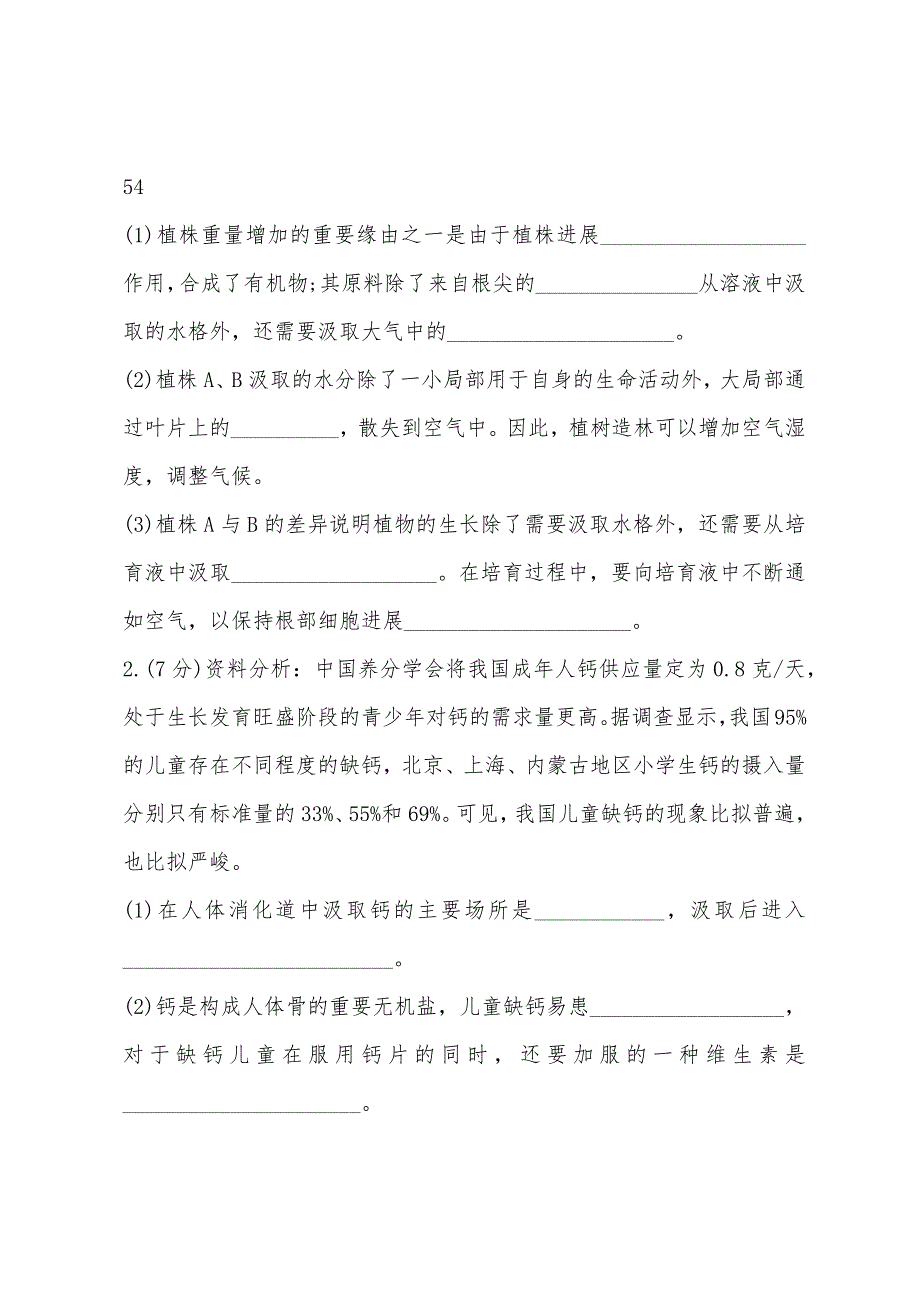 54
(1)植株重量增加的重要缘由之一是由于植株进展___________________
作用，合成了有机物;其原料除了来自根尖的_______________从溶液中汲
取的水格外，还需要汲取大气中的_____________________。
(2)植株 A、B 汲取的水分除了一小局部用于自身的生命活动外，大局部通
过叶片上的__________，散失到空气中。因此，植树造林可以增加空气湿
度，调整气候。
(3)植株 A 与 B 的差异说明植物的生长除了需要汲取水格外，还需要从培
育液中汲取___________________。在培育过程中，要向培育液中不断通
如空气，以保持根部细胞进展_____________________。
2.(7 分)资料分析：中国养分学会将我国成年人钙供应量定为 0.8 克/天，
处于生长发育旺盛阶段的青少年对钙的需求量更高。据调查显示，我国95%
的儿童存在不同程度的缺钙，北京、上海、内蒙古地区小学生钙的摄入量
分别只有标准量的 33%、55%和 69%。可见，我国儿童缺钙的现象比拟普遍，
也比拟严峻。
(1)在人体消化道中汲取钙的主要场所是____________，汲取后进入
_________________________。
(2)钙是构成人体骨的重要无机盐，儿童缺钙易患__________________，
对于缺钙儿童在服用钙片的同时，还要加服的一种维生素是
______________________。